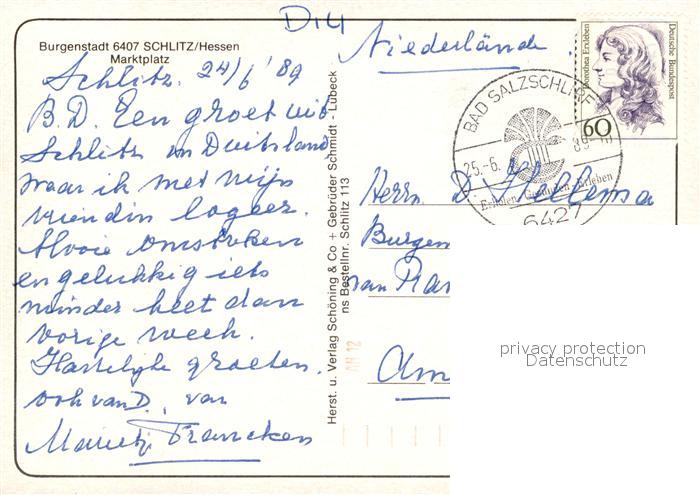 Di4
Burgenstadt 6407 SCHLITZ/Hessen
Marktplatz
Schlitz. 24/6 '89
B.D. Een groet uit
Schlitz in Duitsland
waar ik met mijn
vriendin logeer.
Mooie omstreken
en gelukkig iets
minder heet dan
vorige week.
Hartelijke groeten.
ook van D. van
Francken
Herst. u. Verlag Schöning & Co + Gebrüder Schmidt - Lübeck
ns Bestellnr. Schlitz 113
Niederlände
Dorothea Erxleben
Deutsche Bundespost
60
BAD SALZSCHLIRF
25.-6. 89
Erholen Gesunden Erleben
6427
Herrn D. Hellema
Burgem
van
Am
privacy protection
Datenschutz